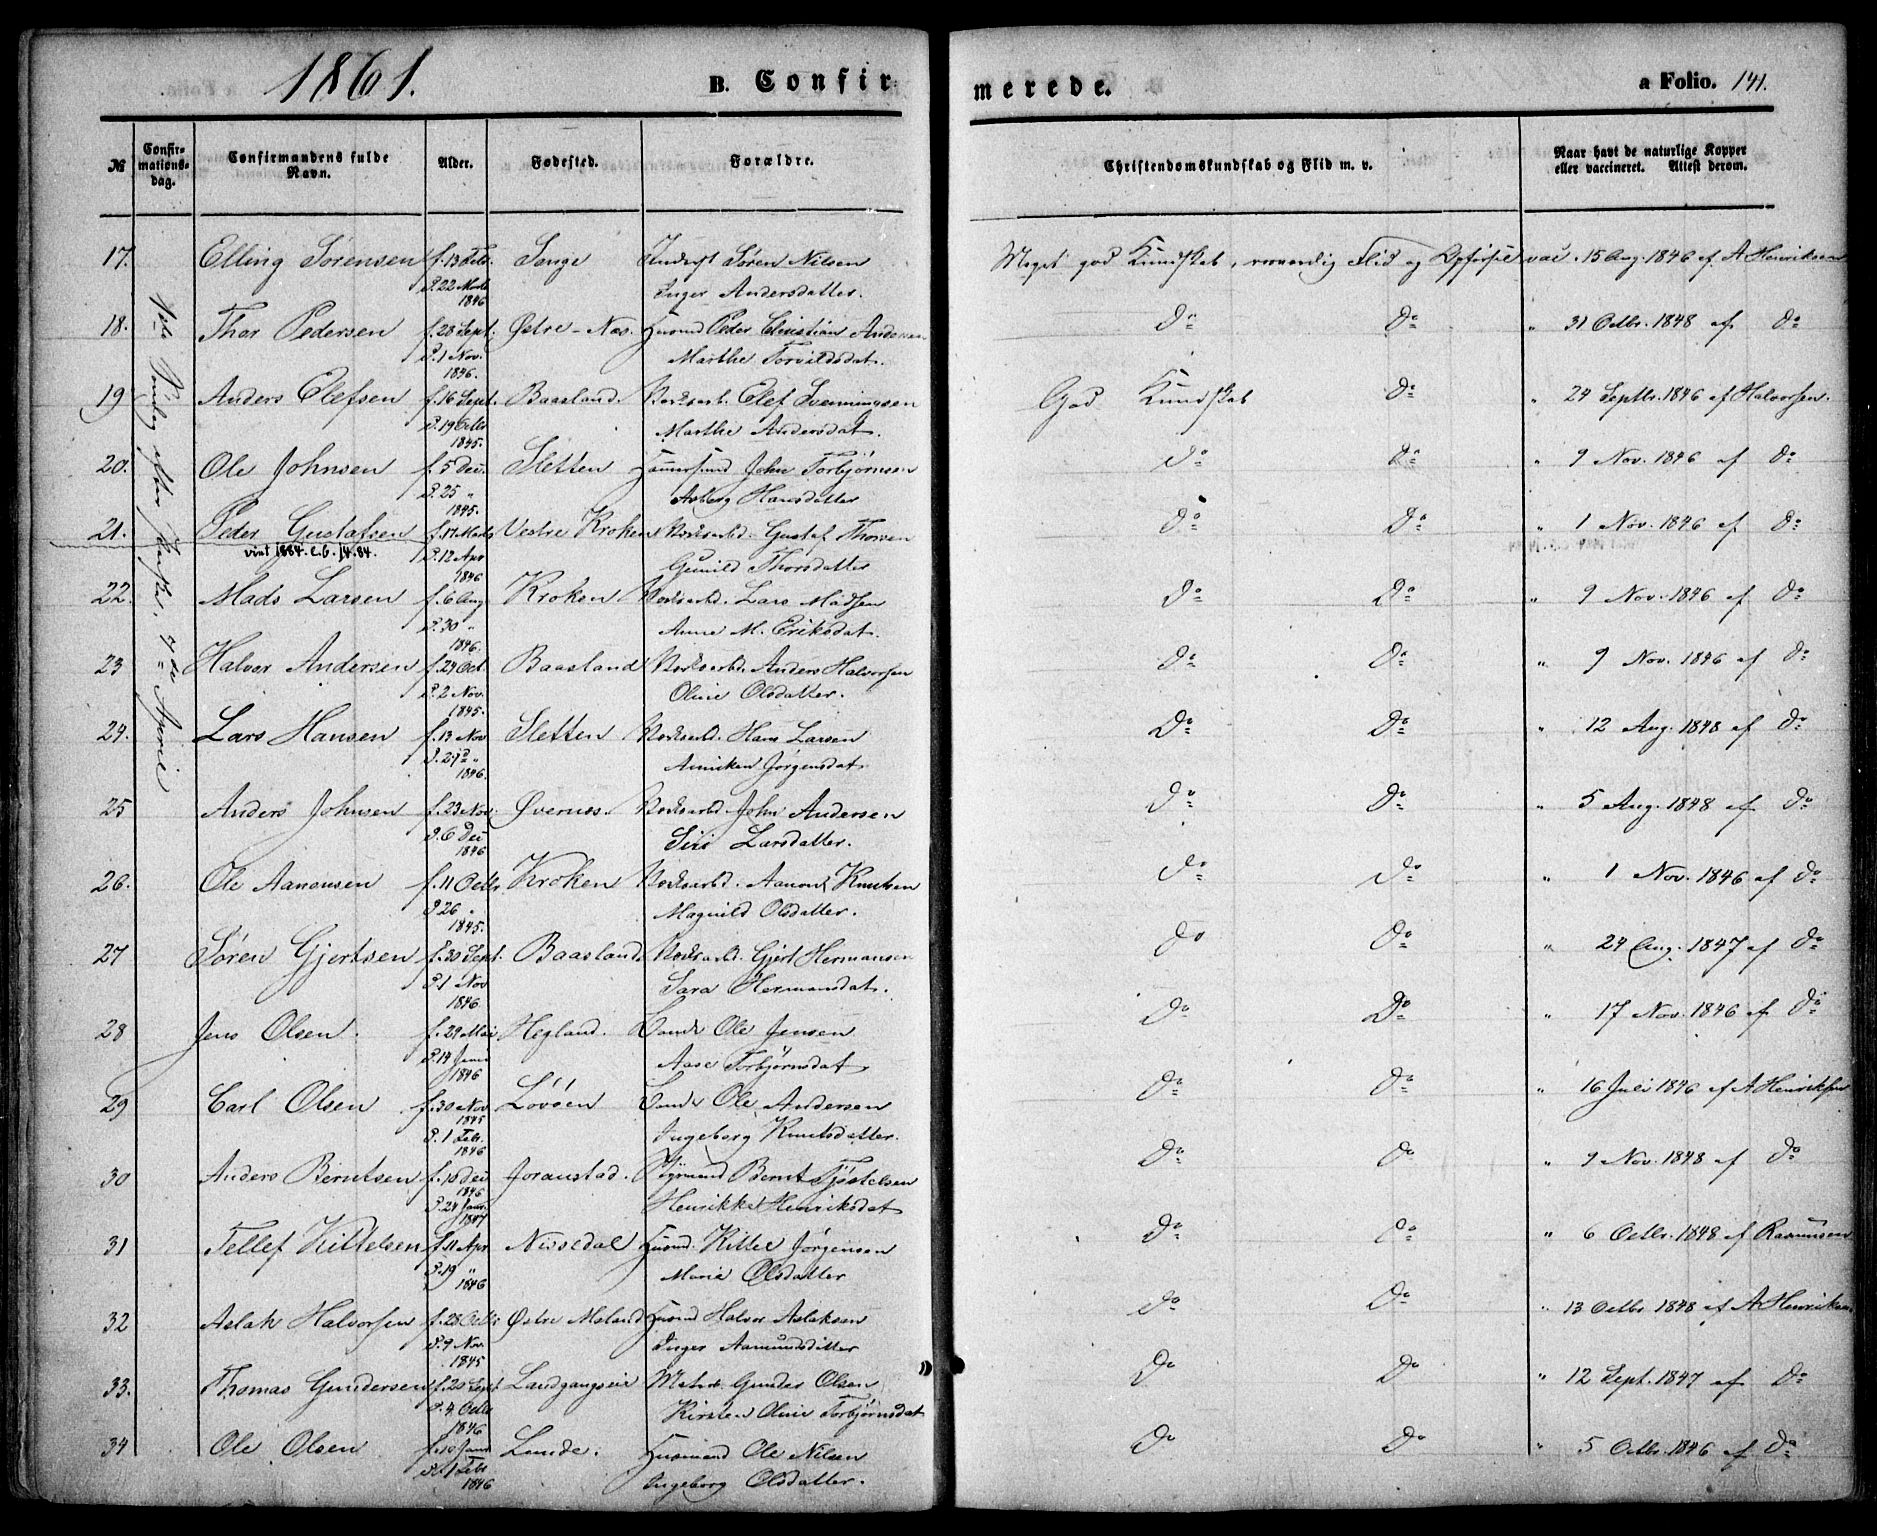 1861.
B. Confir
merede.
a Folio. 141.
№
Confir-
mations-
dag.
Confirmandens fulde
Navn.
Alder.
Fødested.
Forældre.
Christendomskundskab og Flid m. v.
Naar havt de naturlige Kopper
eller vaccineret. Attest derom.
1ste Søndag efter Paaske, 7de April
17. Elling Sørensen f. 13 Feb. Songe Inderst Søren Nilsen Meget god Kundskab, Flid og Opførsel vac. 15 Aug. 1846 af A Henriksen
D. 22 Marts Inger Andersdatter.
1846
18. Thor Pedersen f. 28 Sept. Østre-Næs. Husmd Peder Christian Andersen Do Do " 31 Octbr. 1848 af Do
D. 1 Nov. Marthe Torvildsdat.
1846.
19 Anders Olefsen f. 16 Sept. Baasland. Værksarb. Olef Svenningsen God Kundskab Do " 24 Septbr. 1846 af Halvorsen.
D. 19 Octbr Marthe Andersdat.
1845.
20. Ole Johnsen f. 5 Dec. Sletten Hammersmd John Torbjörnsen Do Do " 9 Nov. 1846 af Do
D. 25 " Asberg Hansdatter
1845.
21. Peder Gustafsen f. 17 Marts Vestre Kroken Værksarbd. Gustaf Thorsen Do Do " 1 Nov. 1846 af Do
viet 1884. C.C. 14. 84. D. 12 Apr Gunild Thorsdatter
1846
22. Mads Larsen f. 6 Aug. Kroken Værksarbd. Lars Madsen Do Do " 9 Nov. 1846 af Do
D. 30 " Anne M. Eriksdat.
1846.
23 Halvor Andersen f. 24 Oct. Baasland Værksarbd. Anders Halvorsen Do Do " 9 Nov. 1846 af Do
D. 2 Nov. Oline Olsdatter.
1845.
24. Lars Hansen f. 13 Nov Sletten Værksarbd. Hans Larsen Do Do " 12 Aug. 1848 af Do
D. 29 " Anniken Jörgensdat
1846.
25 Anders Johnsen f. 23 Nov. Øvernes. Værksarbd. John Andersen Do Do " 5 Aug. 1848 af Do
D. 6 Dec Siri Larsdatter.
1846
26. Ole Aanonsen f. 11 Octbr. Kroken Værksarbd. Aanon Knutsen Do Do " 1 Nov. 1846 af Do
D. 26 " Magnild Olsdatter.
1845.
27 Søren Gjertsen f. 30 Sept. Baasland Værksarbd. Gjert Hermansen Do Do " 24 Aug. 1847 af Do
D. 1 Nov Sara Hermansdat.
1846
28 Jens Olsen. f. 29 Mai Hegland. Ole Jensen Do Do " 17 Nov. 1846 af Do
D. 14 Juni Aase Torbjörnsdat
1846
29 Carl Olsen f. 30 Nov Lövöen Ole Andersen Do Do " 16 Juli 1846 af A Henriksen
1845
D. 1 Feb. Ingeborg Knutsdatter.
1846
30 Anders Berntsen f. 10 Dec Joranstad. Bygmand Bernt Tjöstelsen Do Do " 9 Nov. 1848 af Do
1846
D. 24 Janr. Henrikke Henriksdat
1847
31 Tellef Kittelsen f. 11 Apr Nissedal Husmd. Kittel Jörgensen Do Do " 6 Octbr. 1848 af Rasmussen
D. 19 " Marie Olsdatter
1846
32 Aslak Halvorsen f. 28 Octbr Østre Moland Husmd Halvor Aslaksen Do Do " 13 Octbr 1848 af A Henriksen
D. 9 Nov. Inger Aamundsdatter
1845
33. Thomas Gundersen f. 20 Sept Landgangseie Matros Gunder Olsen Do Do " 12 Sept. 1847 af Do
D. 4 Octbr Kirsten Oline Torbjörnsdat
1846
34 Ole Olsen f. 10 Janr Lunde. Husmand Ole Nilsen Do Do " 5 Octbr. 1846 af Do
D. 1 Febr Ingeborg Olsdatter.
1846